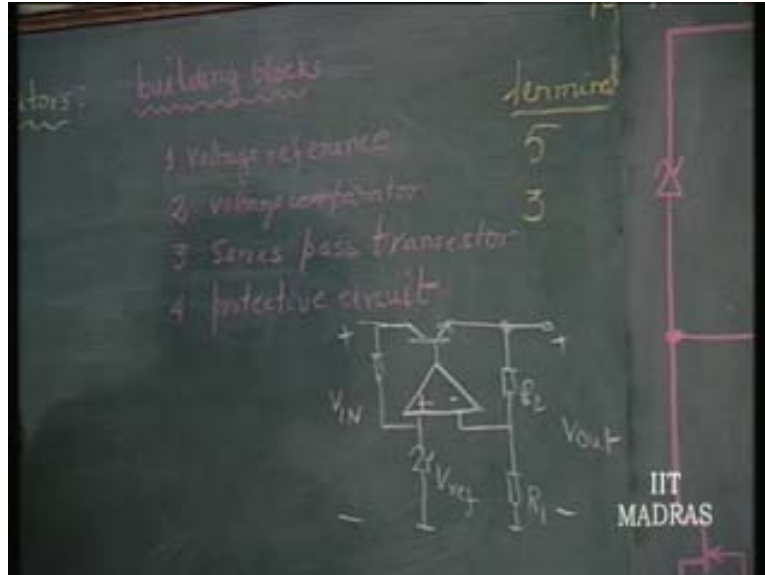 ators: building blocks
terminal
1 Voltage reference
5
2 voltage comparator
3
3 Series pass transistor
4 protective circuit
+ +
R2
VIN
Vout
+ -
Vref
R1
- -
IIT
MADRAS